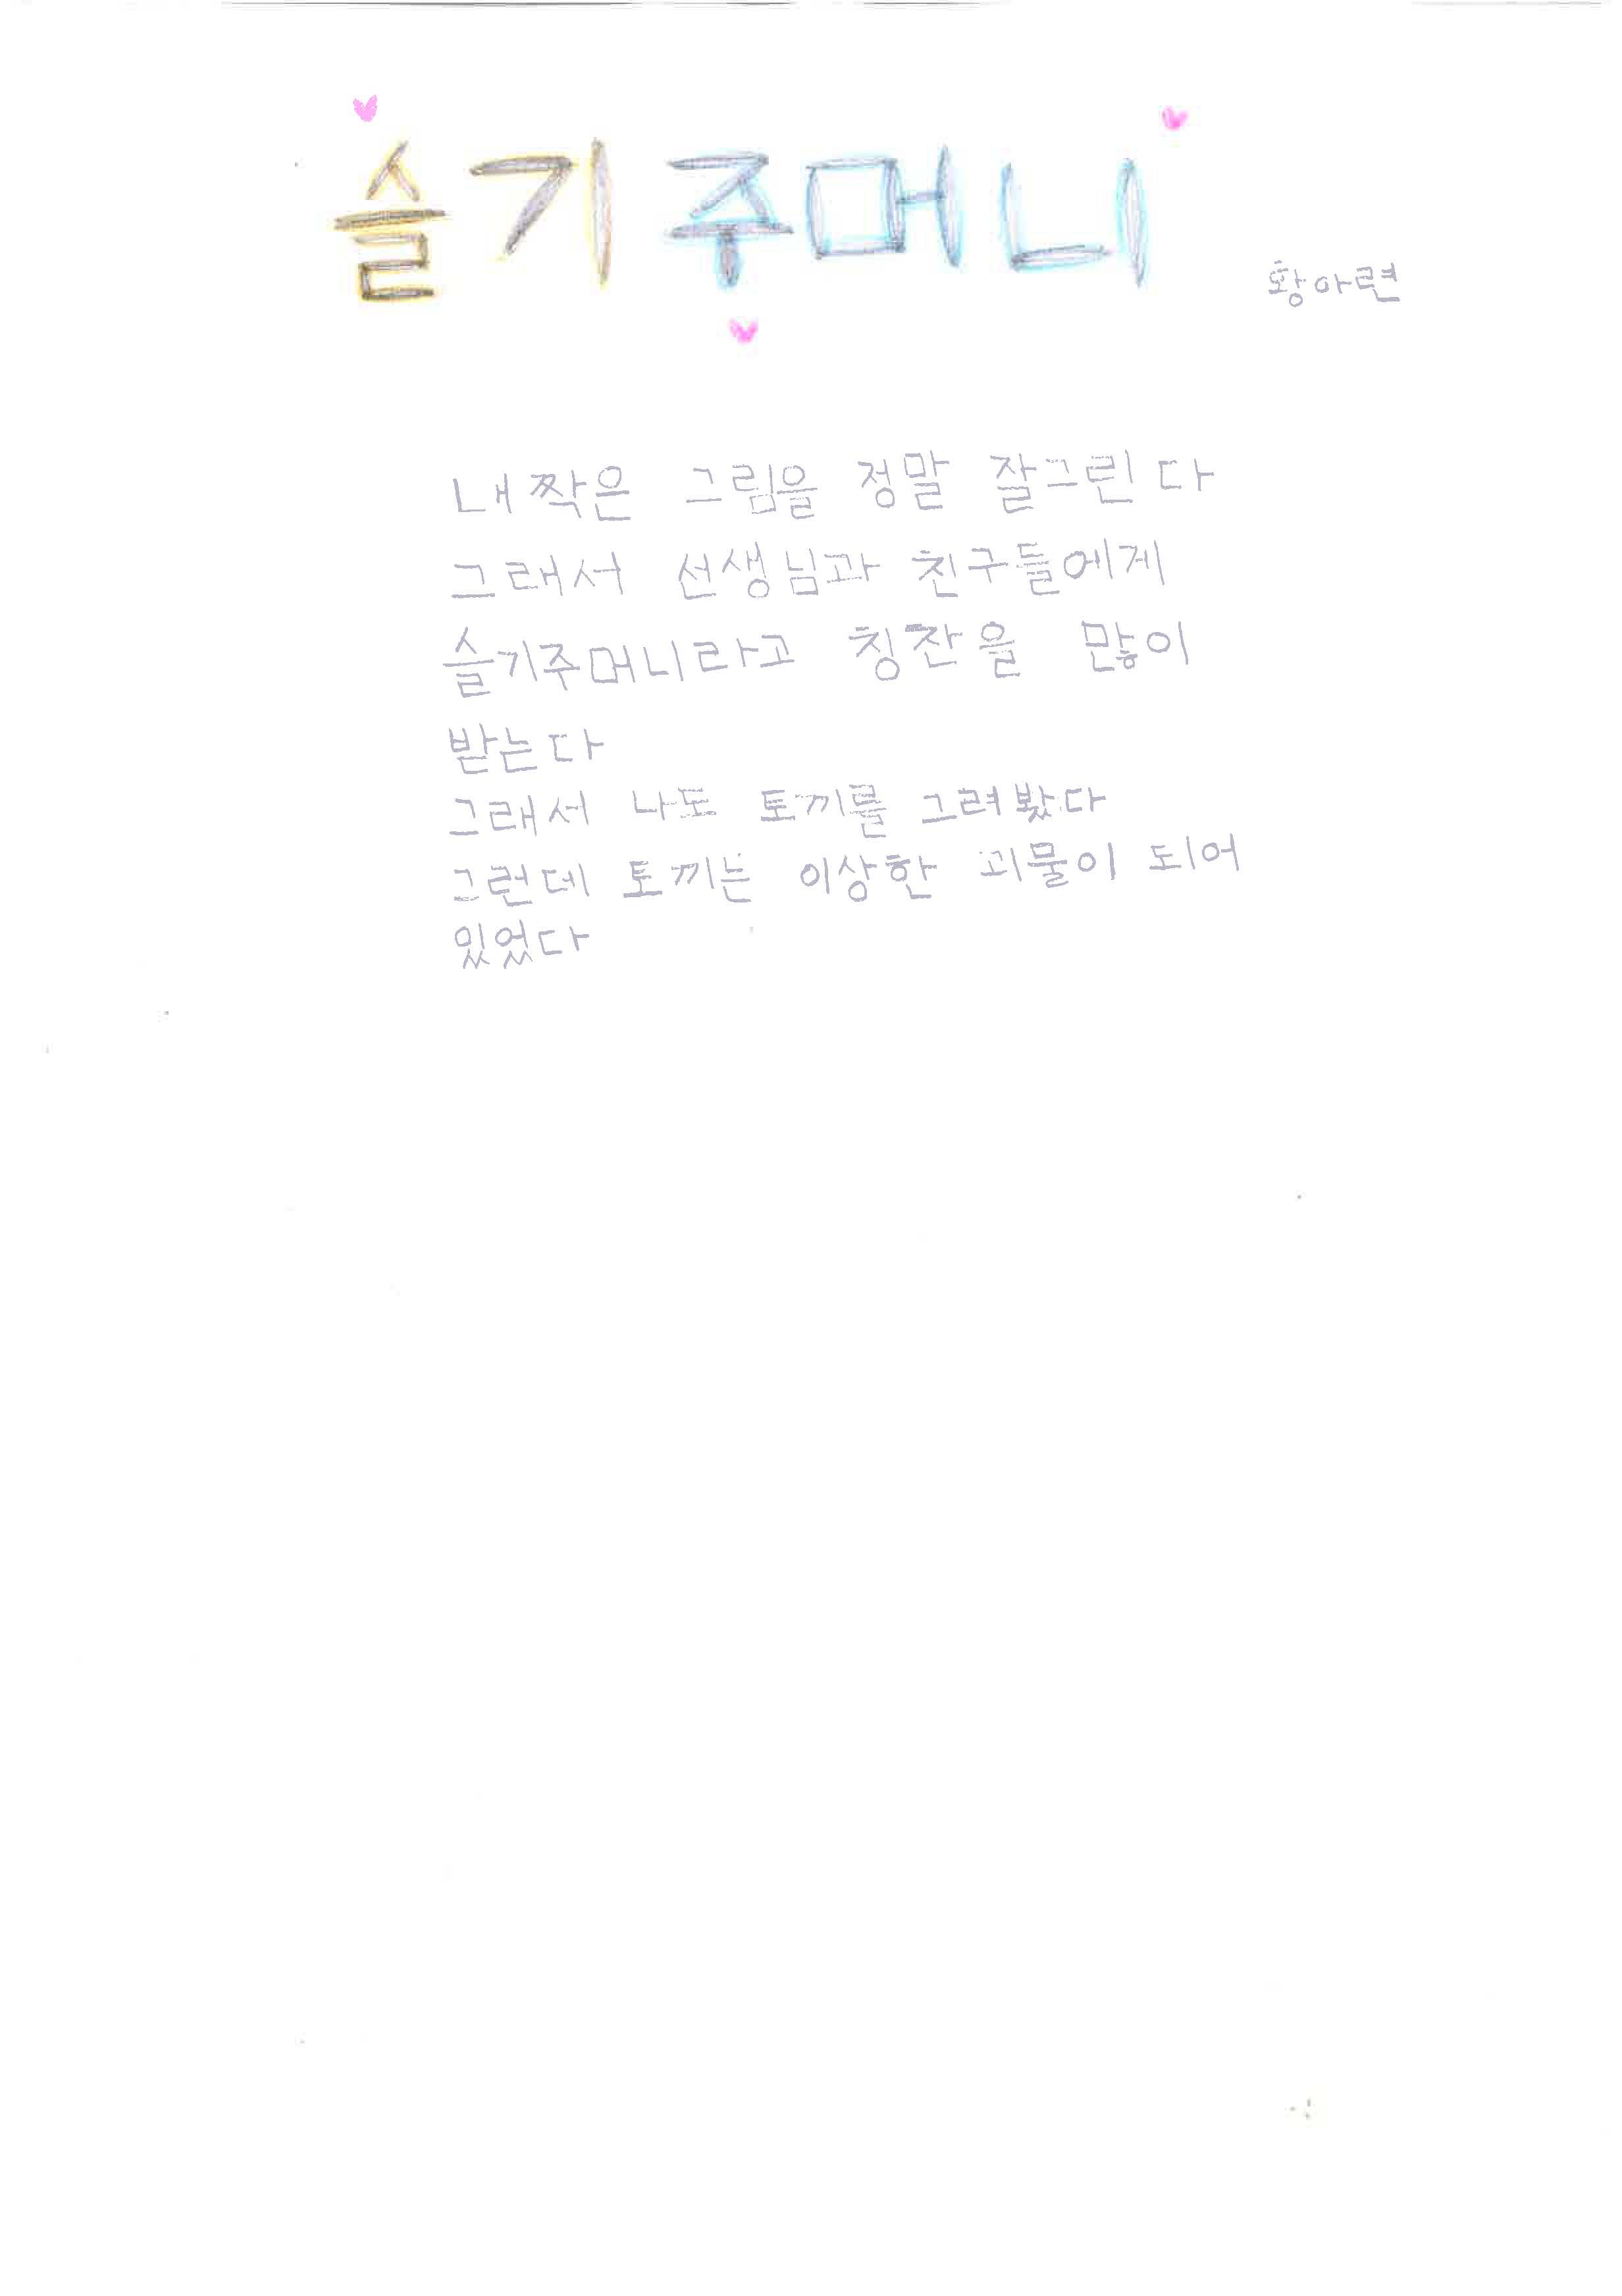 슬기주머니
황아련
내짝은 그림을 정말 잘그린다
그래서 선생님과 친구들에게
슬기주머니라고 칭찬을 많이
받는다
그래서 나도 토끼를 그려봤다
그런데 토끼는 이상한 괴물이 되어
있었다